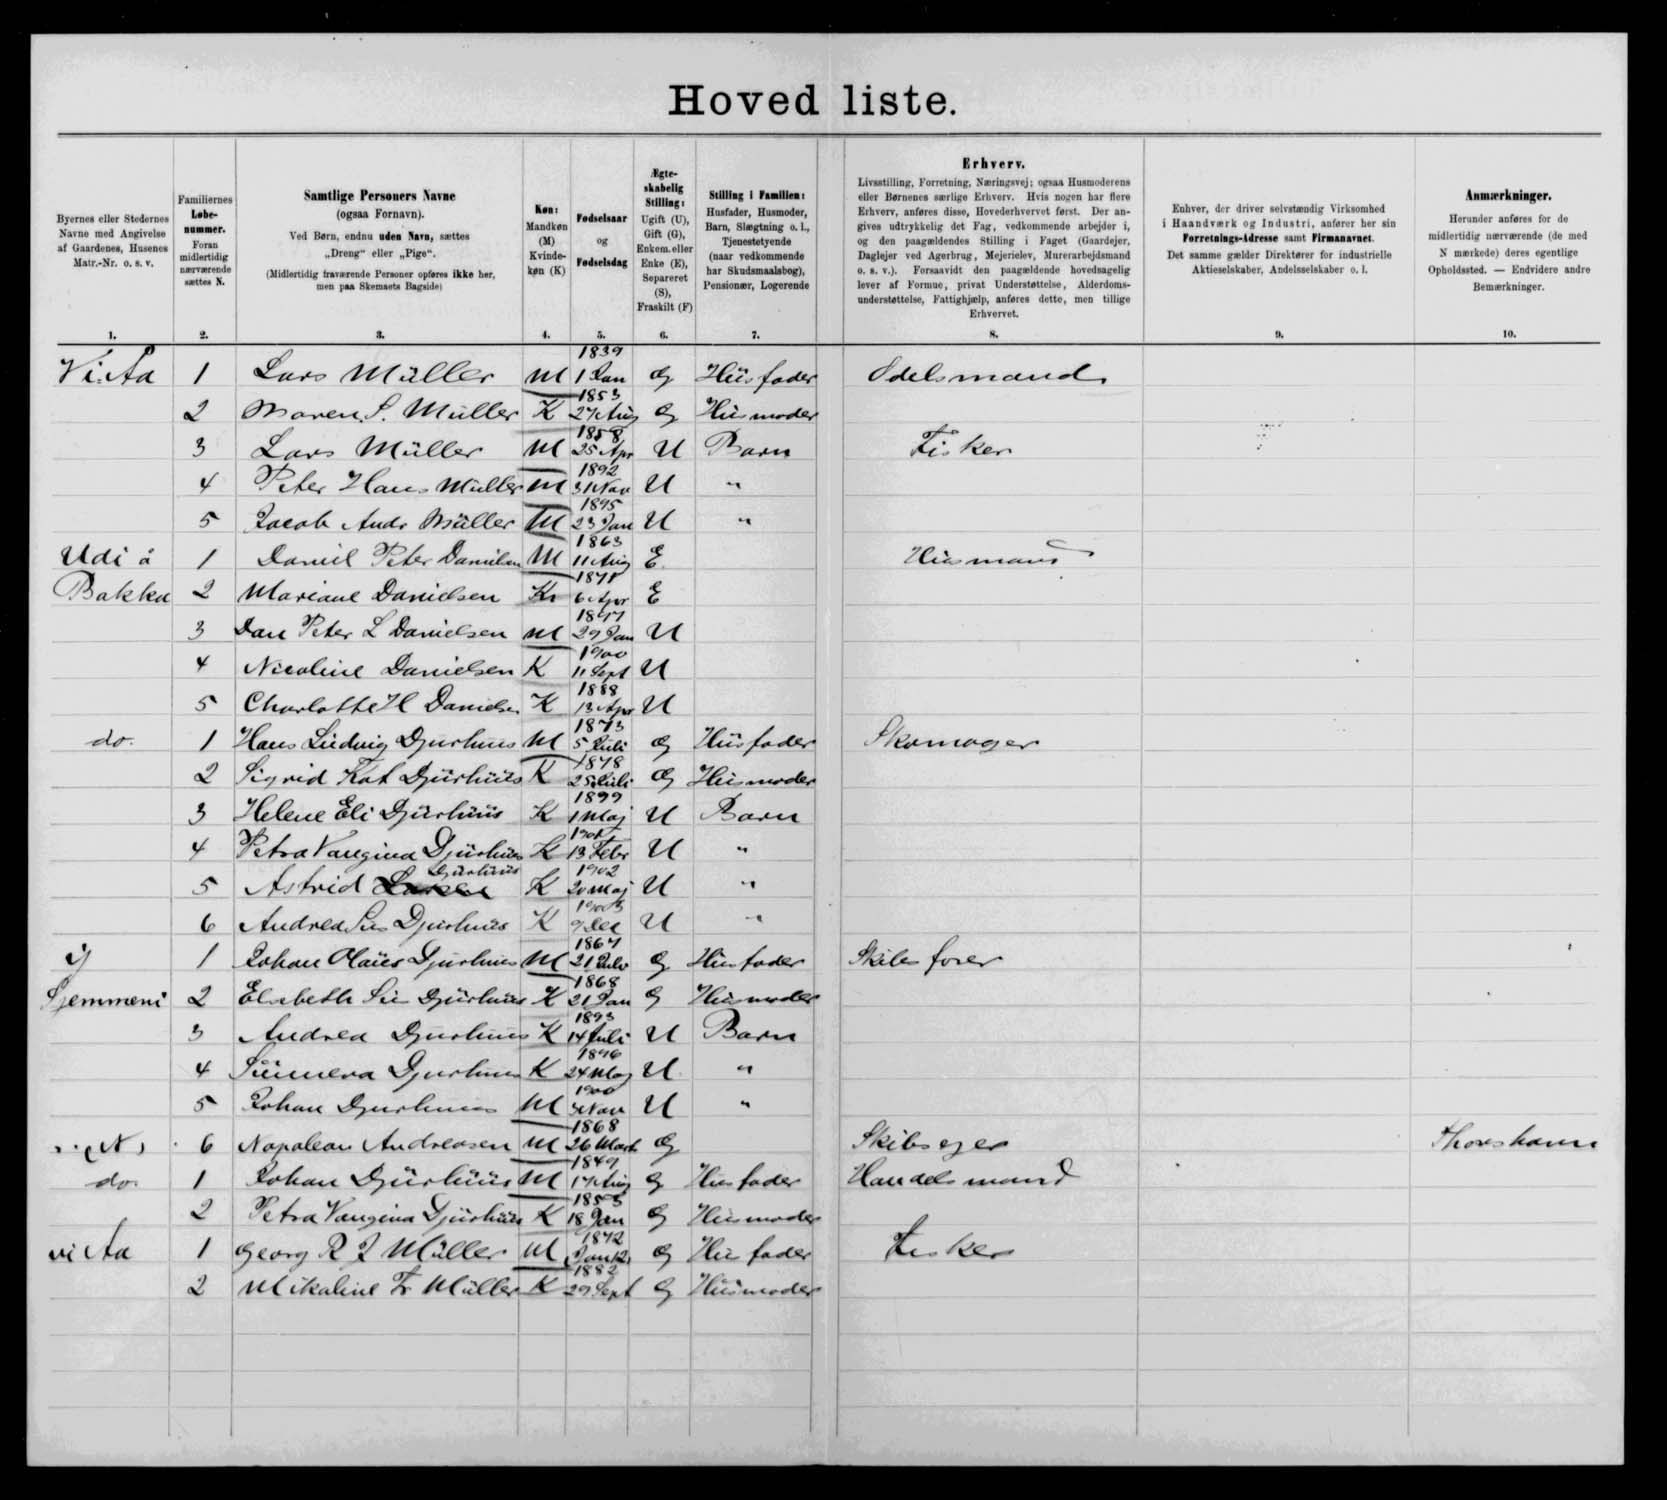 Hoved liste.
Byernes eller Stedernes
Navne med Angivelse
af Gaardenes, Husenes
Matr.-Nr. o. s. v.
Familiernes
Løbe-
nummer.
Foran
midlertidig
nærværende
sættes N.
Samtlige Personers Navne
(ogsaa Fornavn).
Ved Børn, endnu uden Navn, sættes
„Dreng“ eller „Pige“.
(Midlertidig fraværende Personer opføres ikke her,
men paa Skemaets Bagside)
Køn:
Mandkøn
(M)
Kvinde-
køn (K)
Fødselsaar
og
Fødselsdag
Ægte-
skabelig
Stilling:
Ugift (U),
Gift (G),
Enkem. eller
Enke (E),
Separeret
(S),
Fraskilt (F)
Stilling i Familien:
Husfader, Husmoder,
Barn, Slægtning o. l.,
Tjenestetyende
(naar vedkommende
har Skudsmaalsbog),
Pensionær, Logerende
Erhverv.
Livsstilling, Forretning, Næringsvej; ogsaa Husmoderens
eller Børnenes særlige Erhverv. Hvis nogen har flere
Erhverv, anføres disse, Hovederhvervet først. Der an-
gives udtrykkelig det Fag, vedkommende arbejder i,
og den paagældendes Stilling i Faget (Gaardejer,
Daglejer ved Agerbrug, Mejerielev, Murerarbejdsmand
o. s. v.). Forsaavidt den paagældende hovedsagelig
lever af Formue, privat Understøttelse, Alderdoms-
understøttelse, Fattighjælp, anføres dette, men tillige
Erhvervet.
Enhver, der driver selvstændig Virksomhed
i Haandværk og Industri, anfører her sin
Forretnings-Adresse samt Firmanavnet.
Det samme gælder Direktører for industrielle
Aktieselskaber, Andelsselskaber o. l.
Anmærkninger.
Herunder anføres for de
midlertidig nærværende (de med
N mærkede) deres egentlige
Opholdssted. — Endvidere andre
Bemærkninger.
1. 2. 3. 4. 5. 6. 7. 8. 9. 10.
Vi Aa 1 Lars Müller M 1839 1 Jan G Husfader Odelsmand
2 Maren S. Müller K 1853 27 Aug G Husmoder
3 Lars Müller M 25 Apr U Barn Fisker
4 Peter Hans Müller M 1892 U "
5 Jacob Andr Müller M 1895 23 Jan U "
Udi å 1 Daniel Peter Danielsen M 1863 11 Aug E Husmand
Bakka 2 Mariane Danielsen K 6 Apr E
3 Dan Peter L Danielsen M 29 Jan U
4 Nicoline Danielsen K 1900 11 Sept U
5 Charlotte H Danielsen K 1888 13 Apr U
do. 1 Hans Ludvig Djurhuus M 1873 5 Juli G Husfader Skomager
2 Sigrid Kat Djurhuus K 1878 25 Juli G Husmoder
3 Helene Eli Djurhuus K 1899 1 Maj U Barn
4 Petra Vangina Djurhuus K 13 Febr U "
5 Astrid Djurhuus K 1902 20 Maj U "
6 Andrea Sus Djurhuus K 1903 9 Dec U "
1 Johan Olaus Djurhuus M 1867 G Husfader Skibsfører
2 Elsebeth Sus Djurhuus K 1868 21 Jan G Husmoder
3 Andrea Djurhuus K 1893 14 Juli U Barn
4 Sunneva Djurhuus K 1896 24 Maj U "
5 Johan Djurhuus M 1900 U "
6 Napolean Andreasen M 1868 26 Marts G Skibseger Thorshavn
do. 1 Johan Djurhuus M 1849 17 Aug G Husfader Handelsmand
2 Petra Vangina Djurhuus K 18 Jan G Husmoder
vi Aa 1 Georg R J Müller M G Husfader Fisker
2 Mikaline Fr Müller K 1882 29 Sept G Husmoder